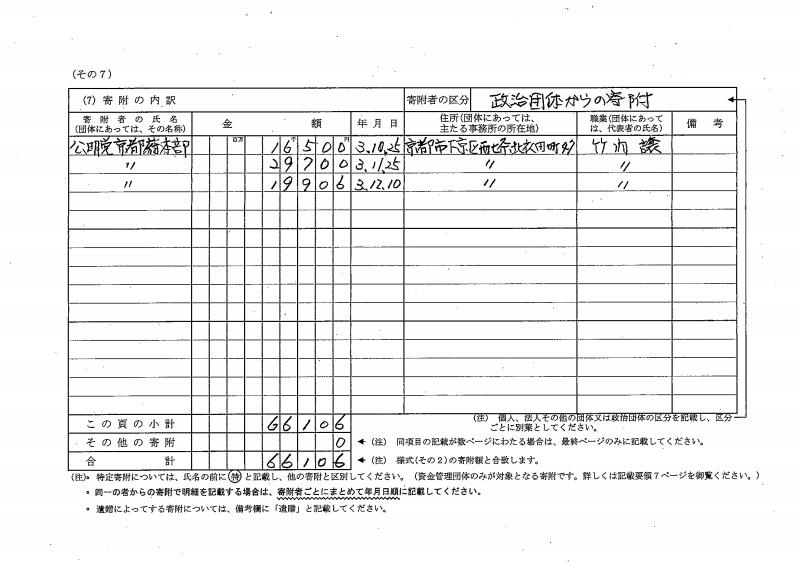 (その7)
(7) 寄附の内訳 寄附者の区分 政治団体からの寄附
寄附者の氏名 (団体にあっては、その名称) 金額 年月日 住所(団体にあっては、主たる事務所の所在地) 職業(団体にあっては、代表者の氏名) 備考
百万 千 円
公明党京都府本部 16500 3.10.25 京都市下京区西七条北衣田町 竹内 譲
〃 29700 3.11.25 〃 〃
〃 19906 3.12.10 〃 〃
この頁の小計 66106
(注) 個人、法人その他の団体又は政治団体の区分を記載し、区分ごとに別葉としてください。
その他の寄附 0 ← (注) 同項目の記載が数ページにわたる場合は、最終ページのみに記載してください。
合計 66106 ← (注) 様式(その2)の寄附額と合致します。
(注)。特定寄附については、氏名の前に(特)と記載し、他の寄附と区別してください。(資金管理団体のみが対象となる寄附です。詳しくは記載要領7ページを御覧ください。)
。同一の者からの寄附で明細を記載する場合は、寄附者ごとにまとめて年月日順に記載してください。
。遺贈によってする寄附については、備考欄に「遺贈」と記載してください。